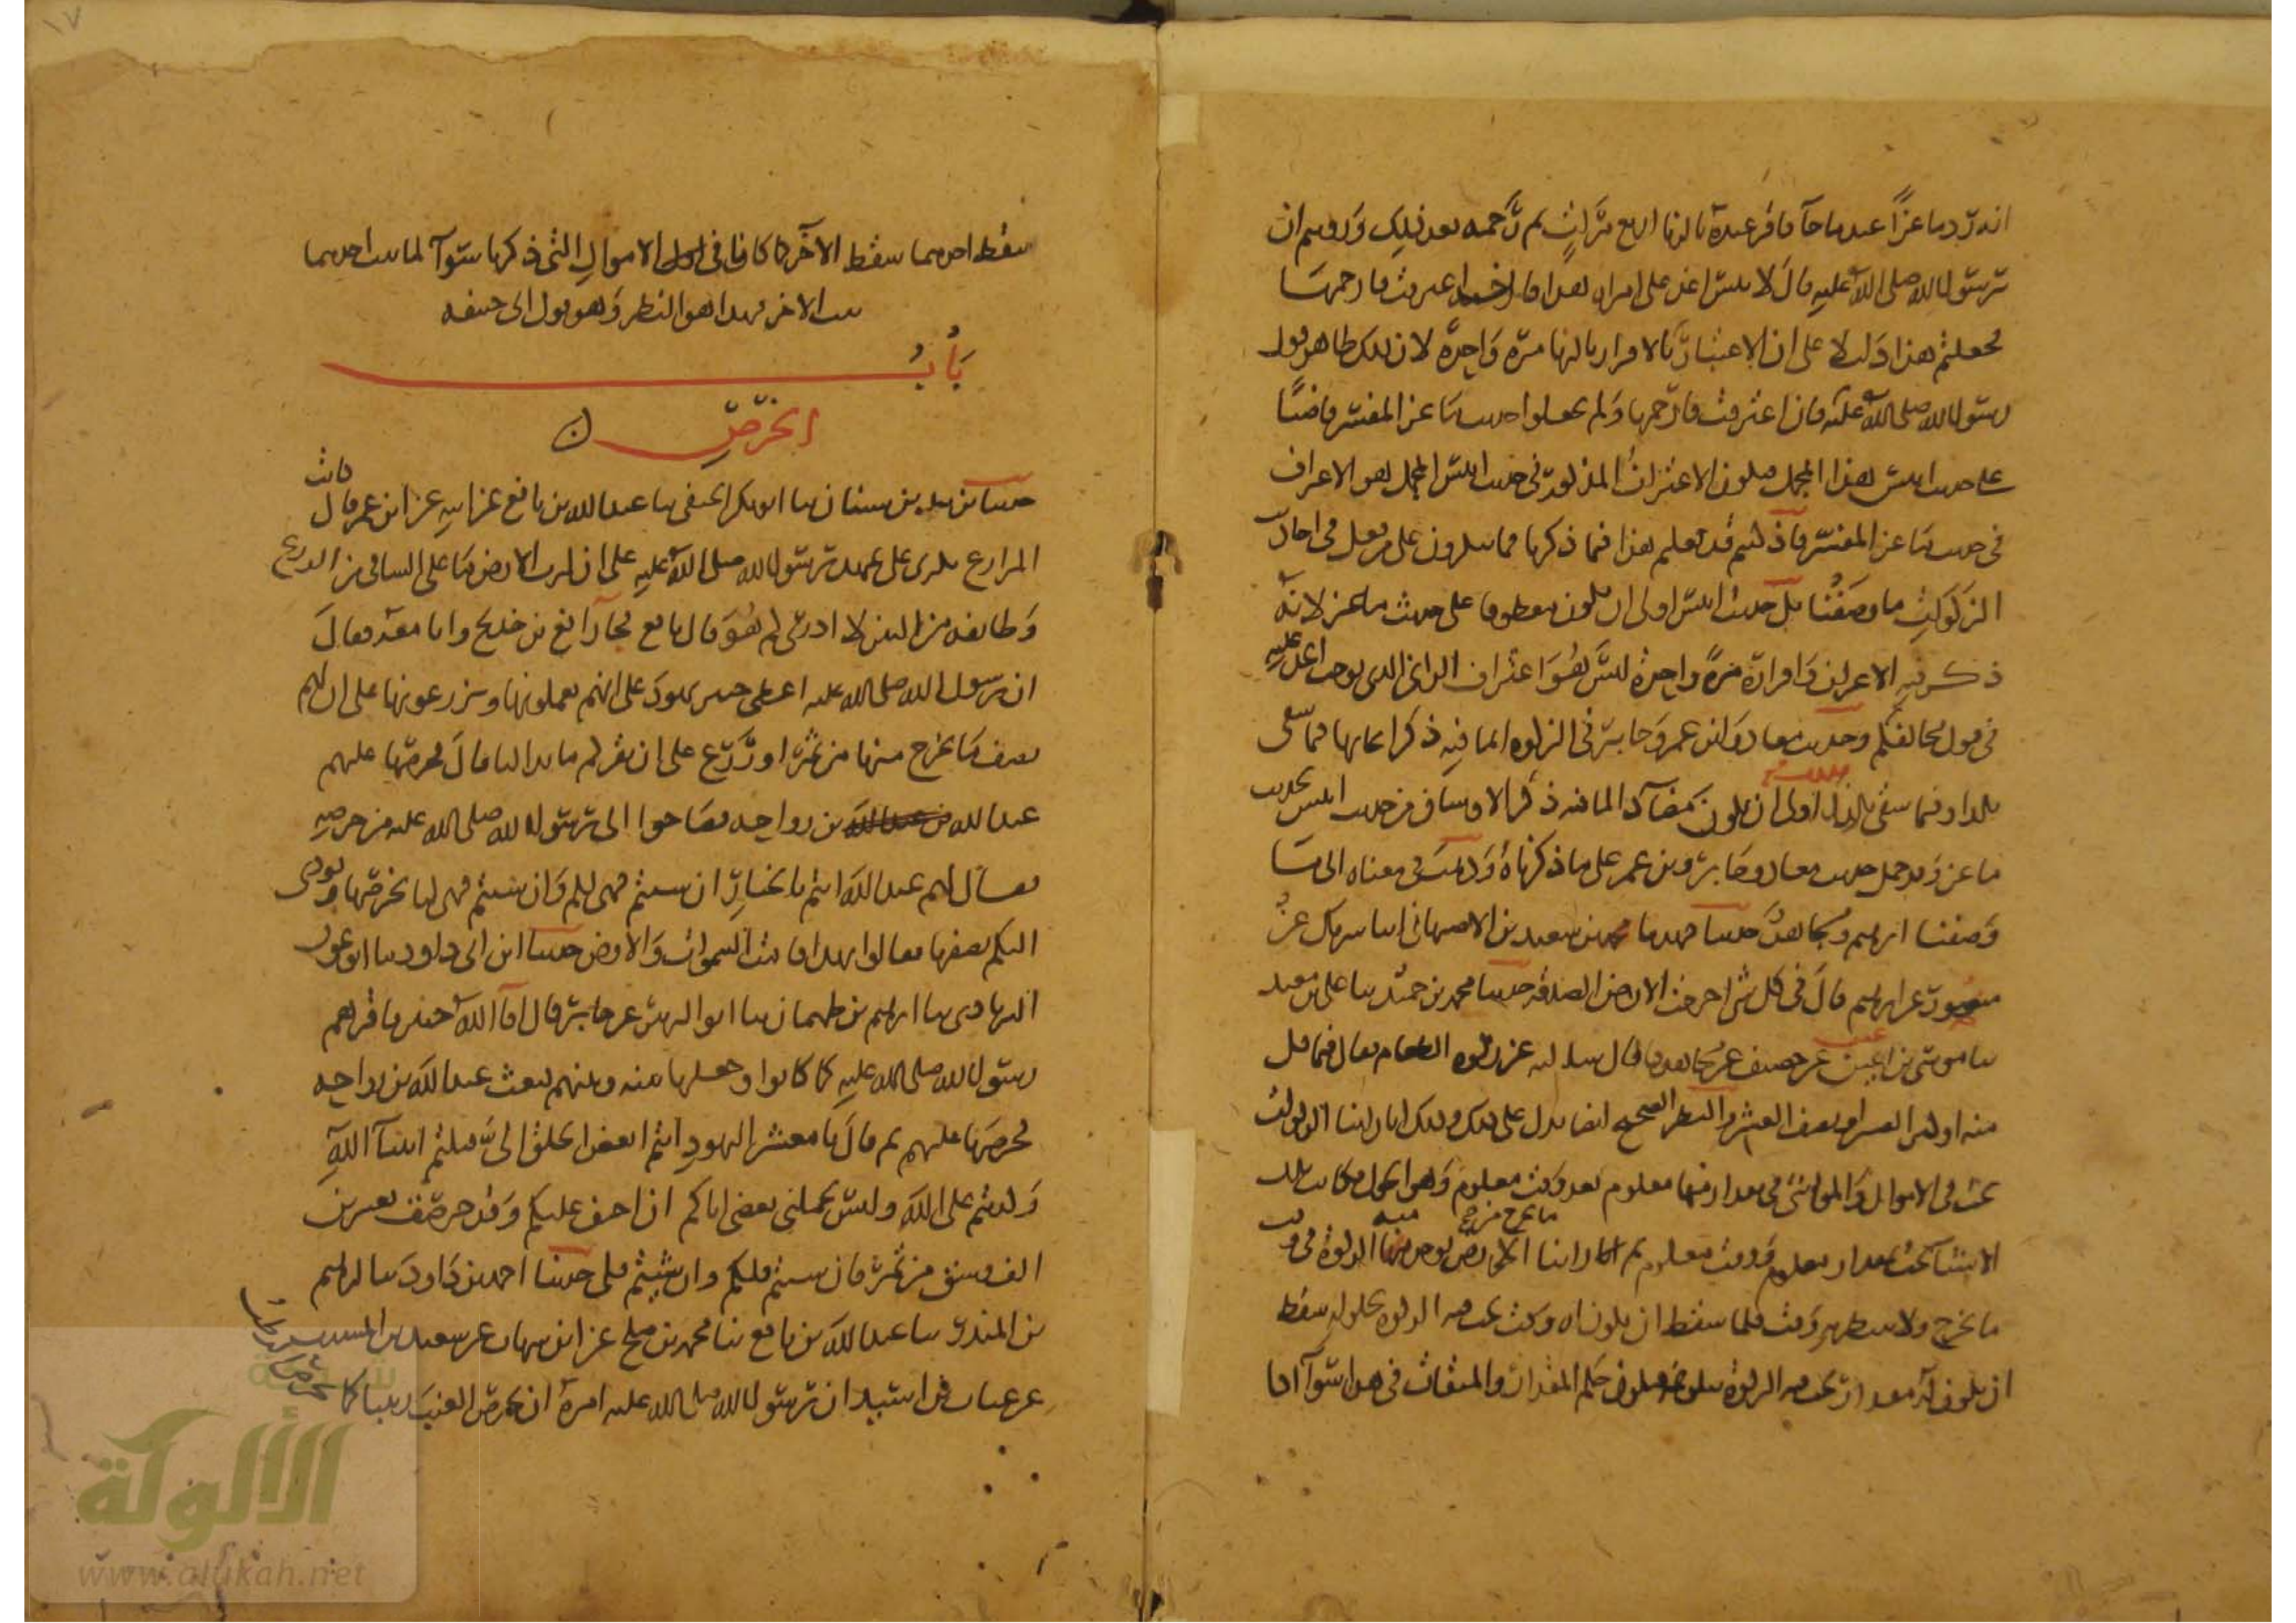 انه رد ماعزا عند ما جآ فاقر عنده بالزنا اربع مرات ثم رجمه بعد ذلك وروىتم ان
رسول الله صلى الله عليه قال لانيس اغد على امراه هذا فان اعترفت فارجمها
فجعلتم هذا دليلا على ان الاعتبار بالاقرار بالزنا مرة واحدة لان ذلك ظاهر قول
رسول الله صلى الله عليه فان اعترفت فارجمها ولم تجعلوا حديث ماعز المفسر قاضيا
على حديث انيس هذا المجمل فيكون الاعتراف المذكور فى حديث انيس المجمل هو الاعتراف
فى حديث ماعز المفسر فاذ كنتم قد فعلتم هذا فيما ذكرنا فما تنكرون على من فعل فى احاديث
الزكوات ما وصفنا بل حديث انيس اولى ان يكون معطوفا على حديث ماعز لانه
ذكر فيه الاعتراف واقراره مرة واحدة ليس هو اعتراف الزانى الذى يوجب الحد عليه
فى قول مخالفكم وحديث معاذ وابن عمر وجابر فى الزكوه انما فيه ذكر ايجابها فيما سقى
بكذا وفيما سقى بكذا فذلك اولى ان يكون مضآدا لما فيه ذكر الاوساق من حديث انيس لحديث
ماعز وقد حمل حديث معاذ وجابر وبن عمر على ما ذكرناه وذهب فى معناه الى ما
وصفنا ابرهيم ومجاهد حدثنا فهد نا محمد بن سعيد بن الاصبهانى انا شريك عن
منصور عن ابرهيم قال فى كل شى اخرجت الارض الصدقه حدثنا محمد بن حميد نا على بن معبد
نا موسى بن اعين عن خصيف عن مجاهد قال سالته عن زكوه الطعام فقال فيما قل
منه او كثر العشر او نصف العشر والنظر الصحيح ايضا يدل على ذلك وذلك انا راينا الزكوات
تجب فى الاموال والمواشى فى مقدار منها معلوم بعد وقت معلوم وهو الحول فكانت تلك
الاشيا تجب بمقدار معلوم ووقت معلوم ثم راينا ما تخرج الارض يوخذ منه الزكوة فى وقت
ما تخرج ولا ينتظر به وقت فلما سقط ان يكون له وقت تجب فيه الزكوه بحلوله سقط
ان يكون له مقدار تجب فيه الزكوة ببلوغه فيكون حكم المقدار والميقات فى هذا سوآ اذا
سقط احدهما سقط الآخر كما كانا فى الاموال التى ذكرنا سوآ لما ثبت احدهما
ثبت الاخر فهذا هو النظر وهو قول ابى حنيفه
بابُ
الخرص
حدثنا يزيد بن سنان نا ابو بكر الحنفى نا عبد الله بن نافع عن ابيه عن ابن عمر قال كانت
المزارع تكرى على عهد رسول الله صلى الله عليه على ان لرب الارض ما على الساقى من الزرع
وطايفه من التبن لا ادرى كم هو قال نافع فجا رافع بن خديج وانا معه فقال
ان رسول الله صلى الله عليه اعطى خيبر يهود على انهم يعملونها ويزرعونها على ان لهم
نصف ما يخرج منها من ثمر او زرع على ان نقركم ما بدا لنا قال فخرصها عليهم
عبد الله بن رواحه فصاحوا الى رسول الله صلى الله عليه من خرصه
فقال لهم عبد الله انتم بالخيار ان شيتم فهى لكم وان شيتم فهى لنا نخرصها ونودى
اليكم نصفها فقالوا بهذا قامت السموات والارض حدثنا ابن ابى داود نا ابو عون
الزيادى نا ابرهيم بن طهمان نا ابو الزبير عن جابر قال افآ الله خيبر فاقرهم
رسول الله صلى الله عليه كما كانوا وجعلها بينه وبينهم فبعث عبد الله بن رواحه
فخرصها عليهم ثم قال يا معشر اليهود انتم ابغض الخلق الى قتلتم انبيآ الله
وكذبتم على الله وليس يحملنى بغضى اياكم ان احيف عليكم وقد خرصت بعشرين
الف وسق من تمر فان شيتم فلكم وان شيتم فلى حدثنا احمد بن داود نا ابرهيم
بن المنذر نا عبد الله بن نافع نا محمد بن صلح عن ابن شهاب عن سعيد بن المسيب
عن عتاب بن اسيد ان رسول الله صلى الله عليه امره ان يخرص العنب زبيبا كما يخرص الرطب
الألوكة
www.alukah.net